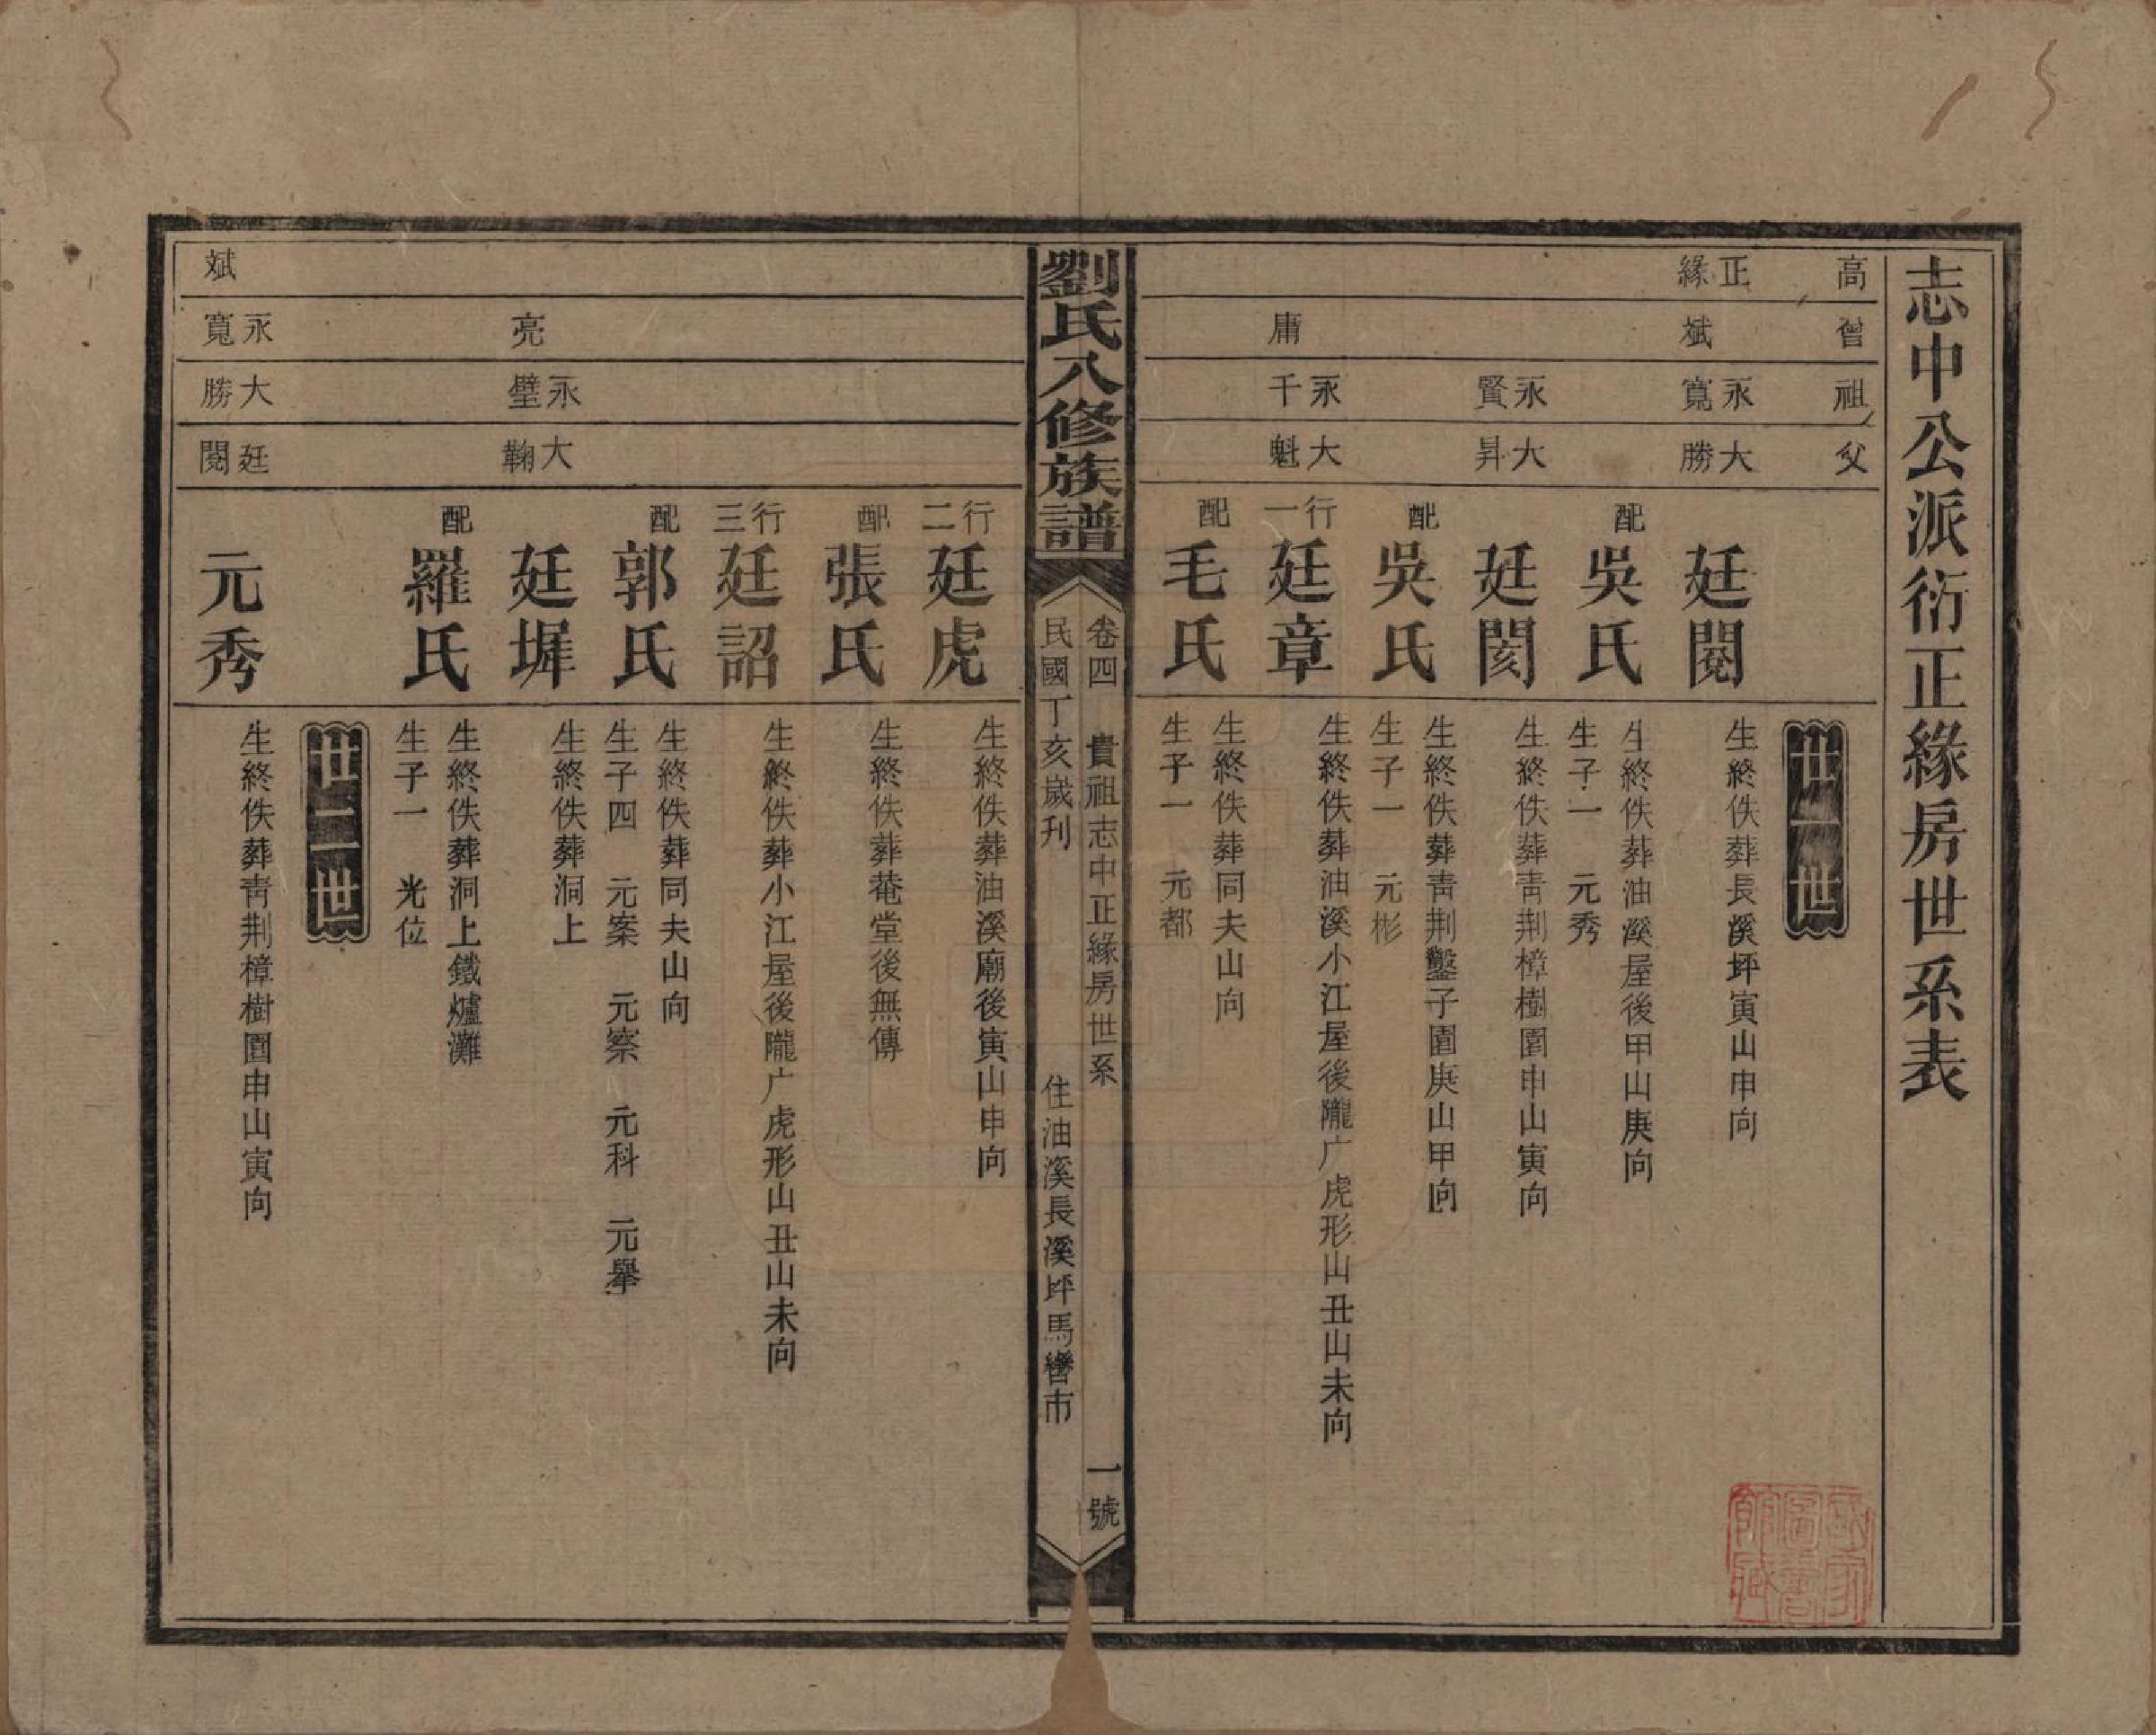 志中公派衍正緣房世系表
高
曾
祖
父
廿一世
正緣
斌
永寬
大勝
廷閱
生終佚葬長溪坪寅山申向
配吳氏
生終佚葬油溪屋後甲山庚向
生子一　元秀
永賢
大昇
廷閡
生終佚葬青荆樟樹園申山寅向
配吳氏
生終佚葬青荆鑿子園庚山甲向
生子一　元彬
庸
永千
大魁
行一
廷章
生終佚葬油溪小江屋後隴广虎形山丑山未向
配毛氏
生終佚葬同夫山向
生子一　元都
劉氏八修族譜
卷四　貴祖志中正緣房世系　一號
民國丁亥歲刋　住油溪長溪坪馬轡市
行二
廷虎
生終佚葬油溪廟後寅山申向
配張氏
生終佚葬菴堂後無傳
行三
廷詔
生終佚葬小江屋後隴广虎形山丑山未向
配郭氏
生終佚葬同夫山向
生子四　元案　元察　元科　元舉
亮
永壁
大鞠
廷墀
生終佚葬洞上
配羅氏
生終佚葬洞上鐵爐灘
生子一　光位
廿二世
斌
永寬
大勝
廷閱
元秀
生終佚葬青荆樟樹園申山寅向
國家圖書館藏